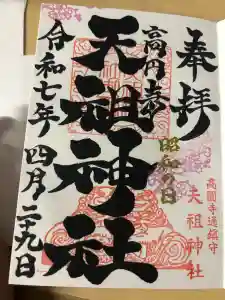 奉拝
高円寺
天祖神社
昭和の日
令和七年四月二十九日
高圓寺通鎮守
天祖神社